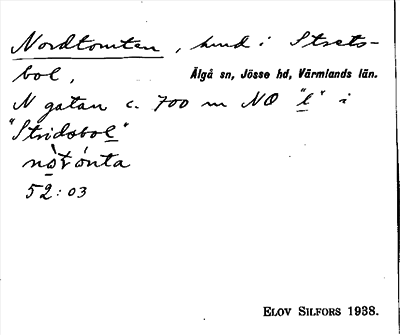 Nordtomten, hmd i Strets-
bol, Älgå sn, Jösse hd, Värmlands län.
N gatan c. 700 m NO "l" i
"Stridsbol"
nòtónta
52:03
ELOV SILFORS 1938.